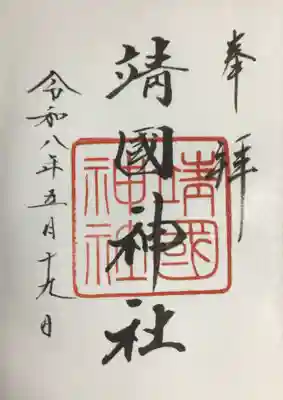 奉拝
靖國神社
靖國
神社
令和八年五月十九日